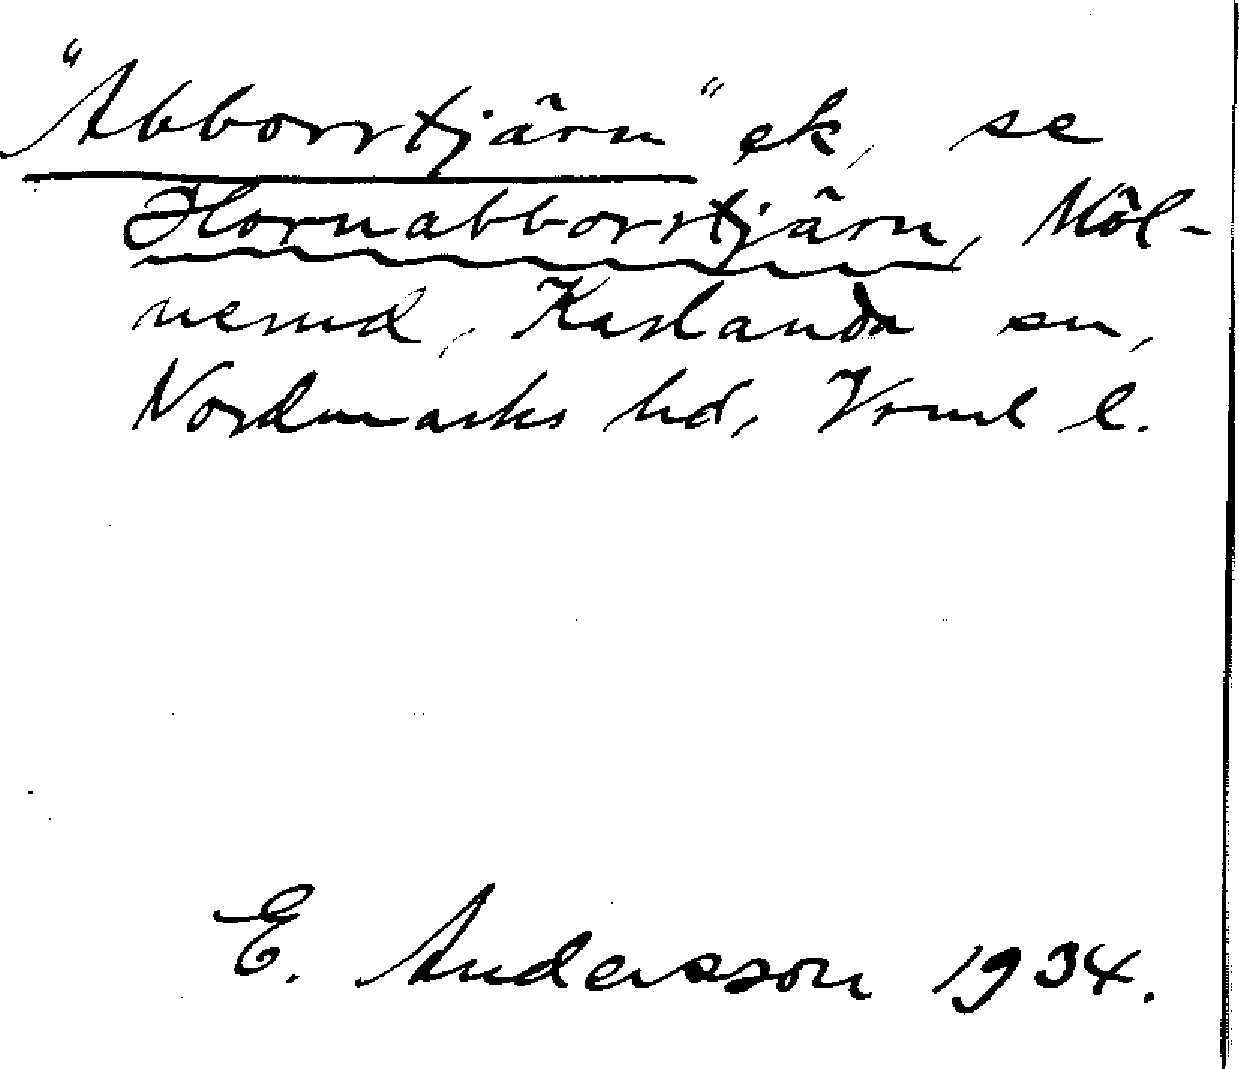 "Abborrtjärn" ek, se
Hornabborrtjärn, Möl-
nerud, Karlanda sn,
Nordmarks hd, Vrml l.
E. Andersson 1934.